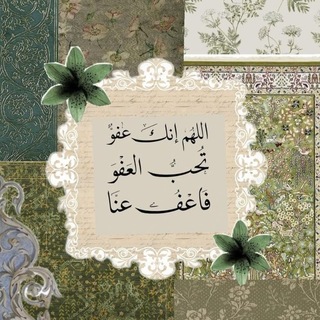 اللهُم إنكَ عفوٌ
تُحبُّ العَفْوَ
فَاعْفُ عنَا